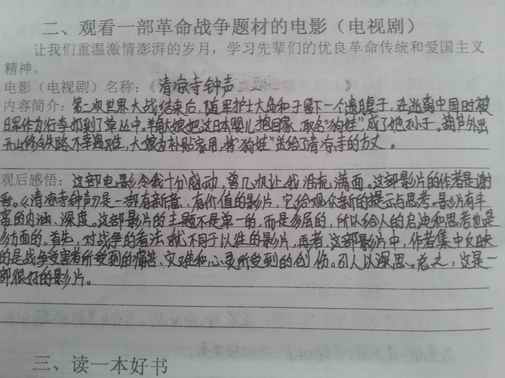 二、观看一部革命战争题材的电影（电视剧）
让我们重温激情澎湃的岁月，学习先辈们的优良革命传统和爱国主义
精神。
电影（电视剧）名称：《清凉寺钟声》
内容简介：第二次世界大战结束后，随军护士大岛和子留下一个遗腹子，在逃离中国时被
日军作为行李扔到了草丛中。羊角大娘把这日本婴儿抱回家，取名"狗娃"成了她孙子，
开山修公路不幸遇难，大娘为补贴家用，将"狗娃"送给了清凉寺的方丈。
观后感悟：这部电影令我十分感动，曾几次让我泪流满面。这部影片的作者是谢
晋。《清凉寺钟声》是一部有新意、有价值的影片，它给观众新的提示与思考。影片有丰
富的内涵、深度。这部影片的主题不是单一的，而是多层的，所以给人的启迪和思考也是
多方面的。首先，对战争的看法就不同于以往的影片，再者，这部影片中，作者集中反映
的是战争受害者所受到的痛苦、灾难和心灵所受到的创伤。引人以深思。总之，这是一
部很好的影片。
三、读一本好书